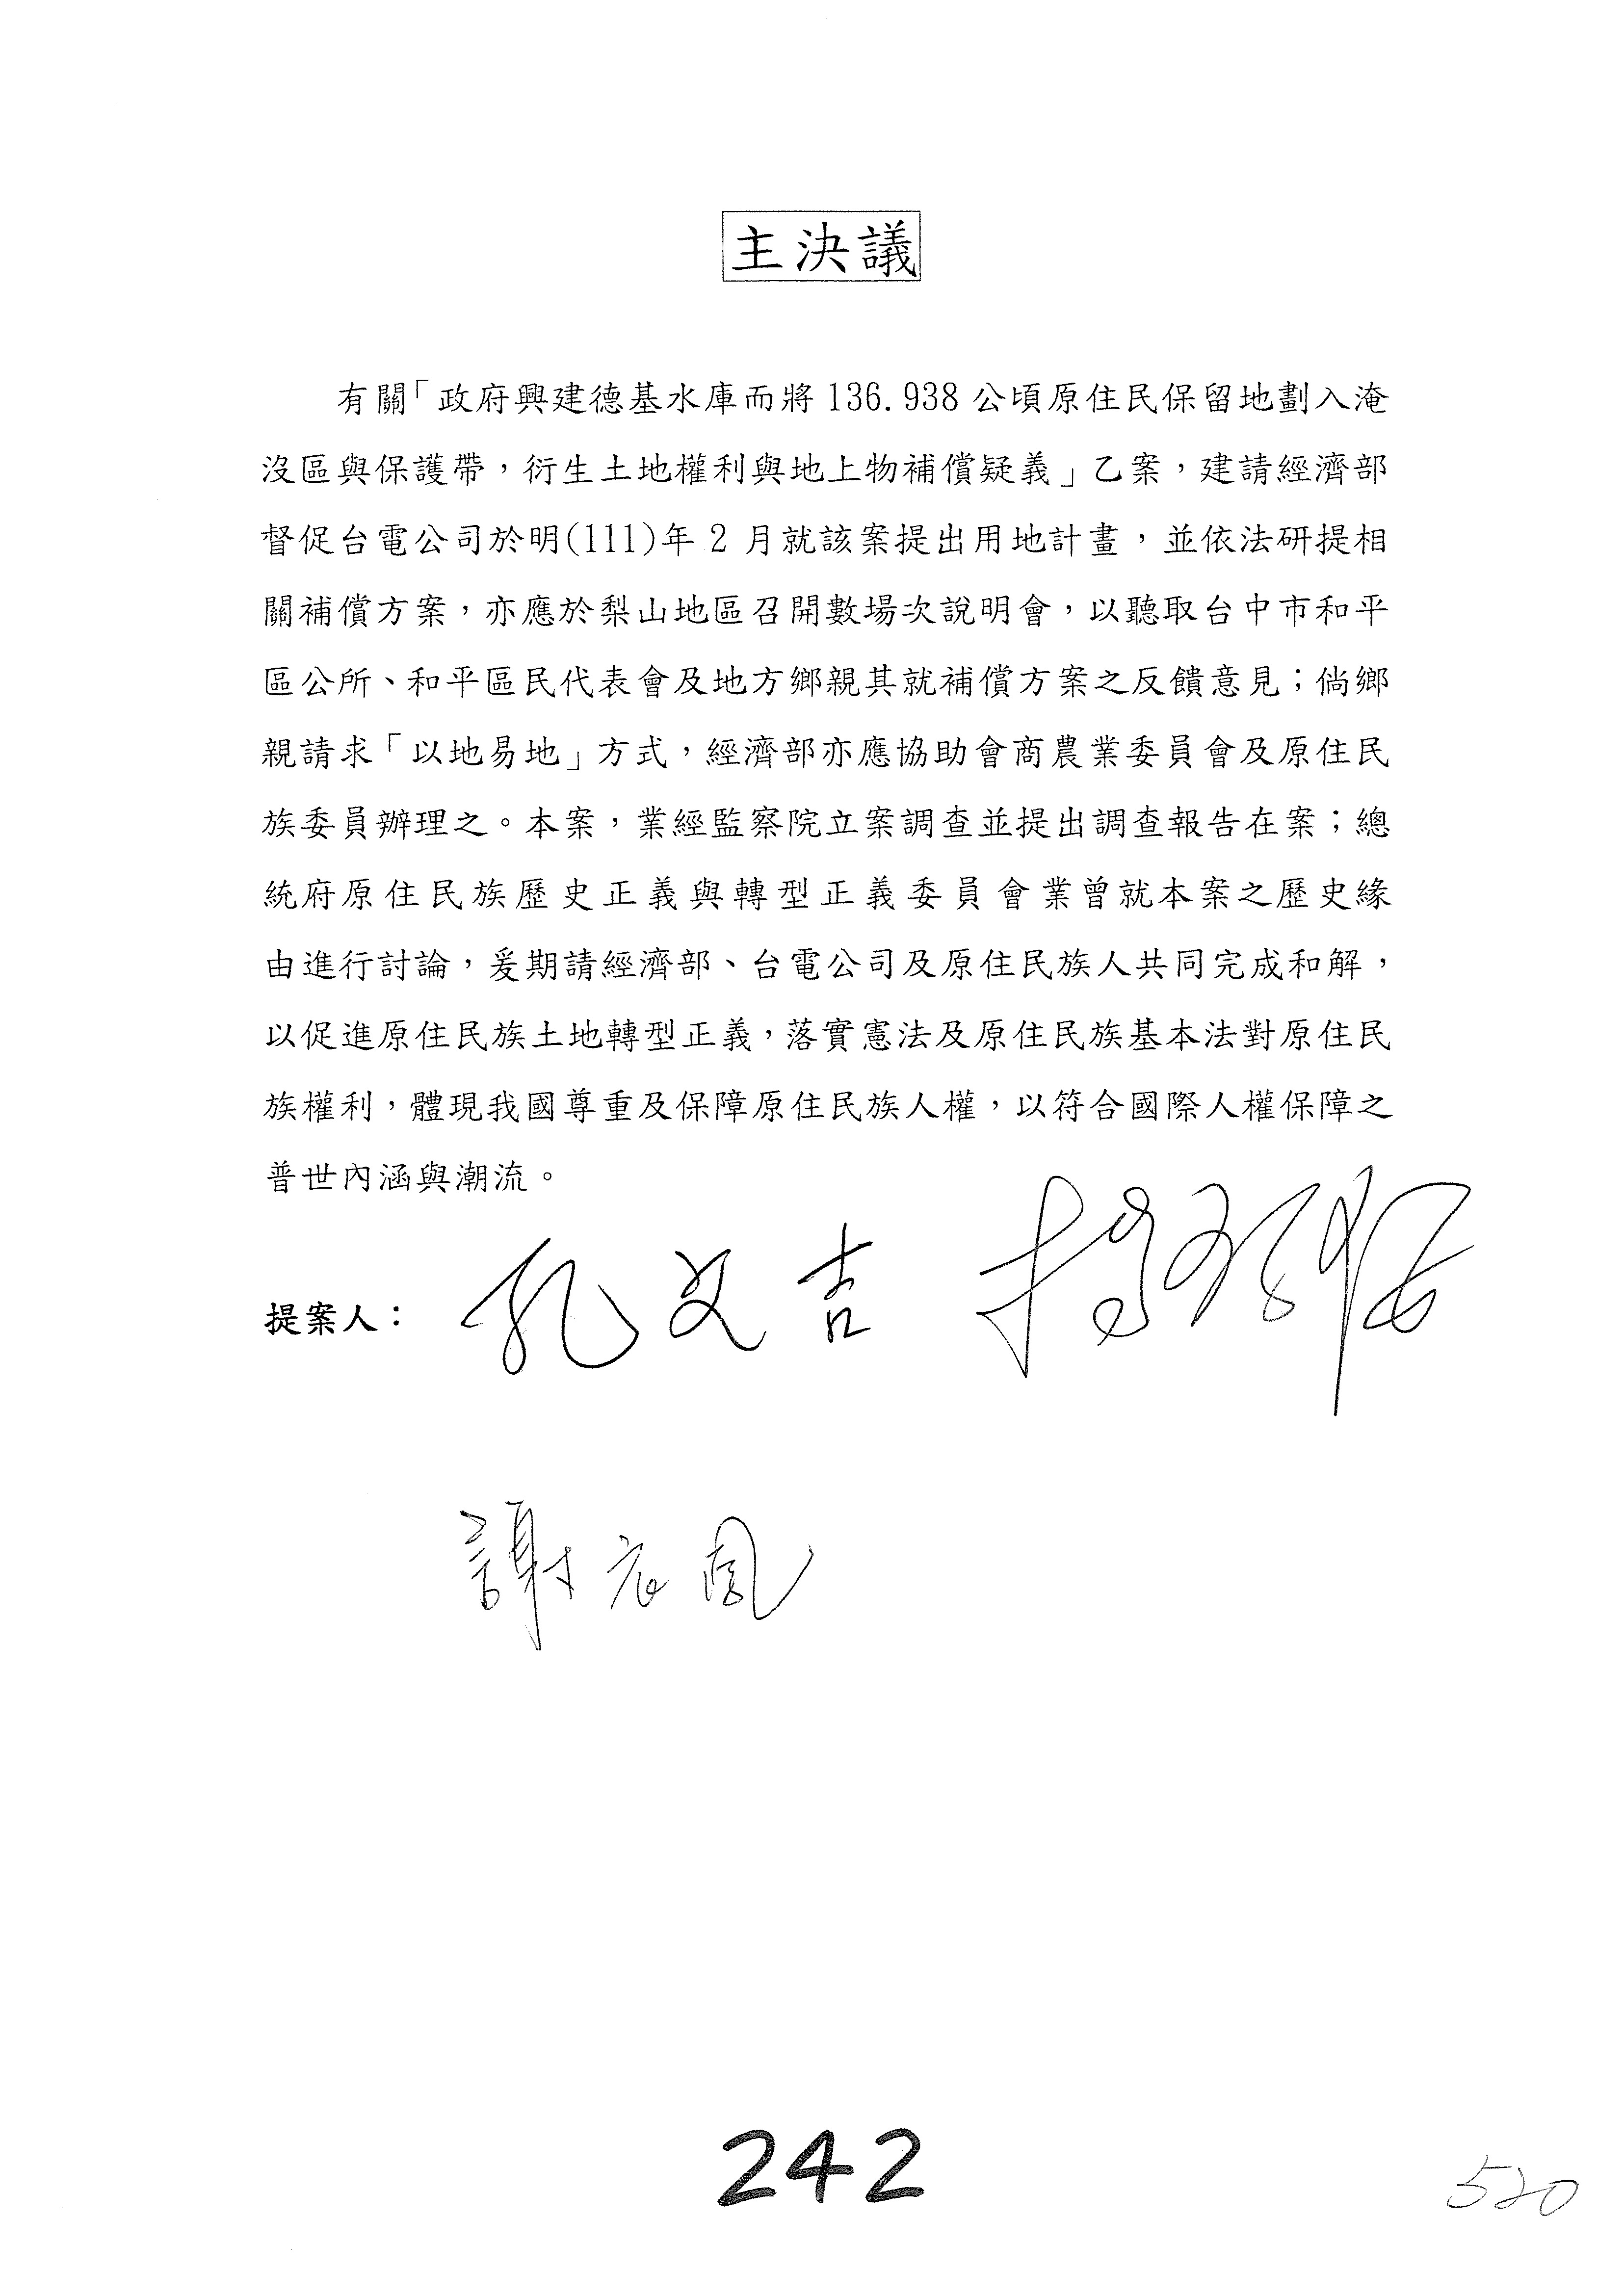 主決議
有關「政府興建德基水庫而將136.938公頃原住民保留地劃入淹
沒區與保護帶，衍生土地權利與地上物補償疑義」乙案，建請經濟部
督促台電公司於明(111)年2月就該案提出用地計畫，並依法研提相
關補償方案，亦應於梨山地區召開數場次說明會，以聽取台中市和平
區公所、和平區民代表會及地方鄉親其就補償方案之反饋意見；倘鄉
親請求「以地易地」方式，經濟部亦應協助會商農業委員會及原住民
族委員辦理之。本案，業經監察院立案調查並提出調查報告在案；總
統府原住民族歷史正義與轉型正義委員會業曾就本案之歷史緣
由進行討論，爰期請經濟部、台電公司及原住民族人共同完成和解，
以促進原住民族土地轉型正義，落實憲法及原住民族基本法對原住民
族權利，體現我國尊重及保障原住民族人權，以符合國際人權保障之
普世內涵與潮流。
提案人：孔文吉
謝衣鳳
242
520